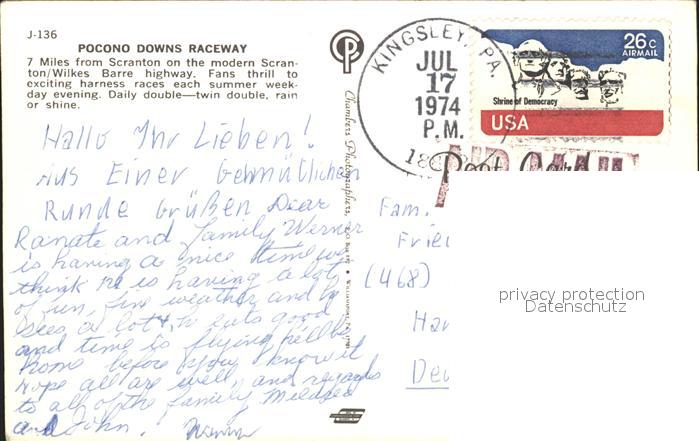 J-136
POCONO DOWNS RACEWAY
7 Miles from Scranton on the modern Scran-
ton/Wilkes Barre highway. Fans thrill to
exciting harness races each summer week-
day evening. Daily double—twin double, rain
or shine.
Hallo Ihr Lieben!
Aus Einer Gemütlichen
Runde Grüßen Dear
Ranate and family Werner
is having a nice time we
think he is having a lot
of fun, fine weather and he
sees a lot & he eats good
and time is flying he'll be
home before you know it
hope all are well, and regards
to all of the family Mildred
and John.
Chambers Photographers,
KINGSLEY, PA.
JUL
17
1974
P.M.
26c
AIRMAIL
Shrine of Democracy
USA
Post Card
Fam.
Frie
(468)
Ha
Deu
privacy protection
Datenschutz